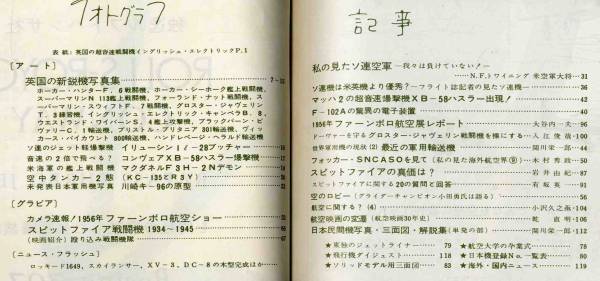 フォトグラフ
表紙:英国の超音速戦闘機イングリッシュ・エレクトリックP.1
[アート]
英国の新鋭機写真集
ホーカー・ハンターF.6戦闘機、ホーカー・シーホーク艦上戦闘機、
スーパーマリンN113艦上戦闘機、フォーランド・ナット戦闘機、ス
ーパーマリン・スウィフトF.7戦闘機、グロスター・ジャヴェリン
T.3練習機、イングリッシュ・エレクトリック・キャンベラB.8、
ウエストランド・ワイバーンS.4艦上攻撃機、ブラックバーン・ビ
ヴァリーC.1輸送機、ブリストル・ブリタニア301輸送機、ヴィッ
カース・バイカウント800輸送機、ハンドレページ・ヘラルド輸送機
ソ連のジェット軽爆撃機 イリューシンIℓ-28ブッチャー
音速の2倍で飛べる? コンヴェアXB-58ハスラー爆撃機
米海軍の艦上戦闘機 マクダネルF3H-2Nデモン
空中タンカー2態 (KC-135とR3Y)
未発表日本軍用機写真 川崎キ-96の原型
[グラビア]
カメラ速報/1956年ファーンボロ航空ショー
スピットファイア戦闘機1934~1945
(映画紹介) 殴り込み戦闘機隊
[ニュース・フラッシュ]
ロッキード1649、スカイランサー、XV-3、DC-8の木型完成ほか
記事
私の見たソ連空軍 —我々は負けていない!—
N.F.トワイニング 米空軍大将…31
ソ連機は米英機より優秀?—フライト誌記者の見たソ連機
マッハ2の超音速爆撃機XB-58ハスラー出現!…42
F-102Aの驚異の電子装置…40
1956年ファーンボロ航空展レポート…大谷内一夫…96
ドーヴァーを守るグロスター・ジャヴェリン戦闘機を機にする
世界軍用機の現状(2) 最近の軍用輸送機…関川栄一郎
フォッカー・SNCASOを見て(私の見た海外航空界⑨)…木村秀政
スピットファイアの真価は?…岩井由紀
スピットファイアに関する20の質問と回答…有坂英
空のロビー(グライダーチャンピオン小田勇氏を語る)
航空に関する?(4)…小沢久之丞
航空映画の変遷(航空映画30年史)…乾直明
日本民間機写真・三面図・解説集(単発の部) 関川栄一郎…112
★東独のジェットライナー 79 ★航空大学の卒業式 78
★飛行機ダイジェスト 118 ★日本機登録No.一覧表 80
★ソリッドモデル用三面図 83 ★海外・国内ニュース 119